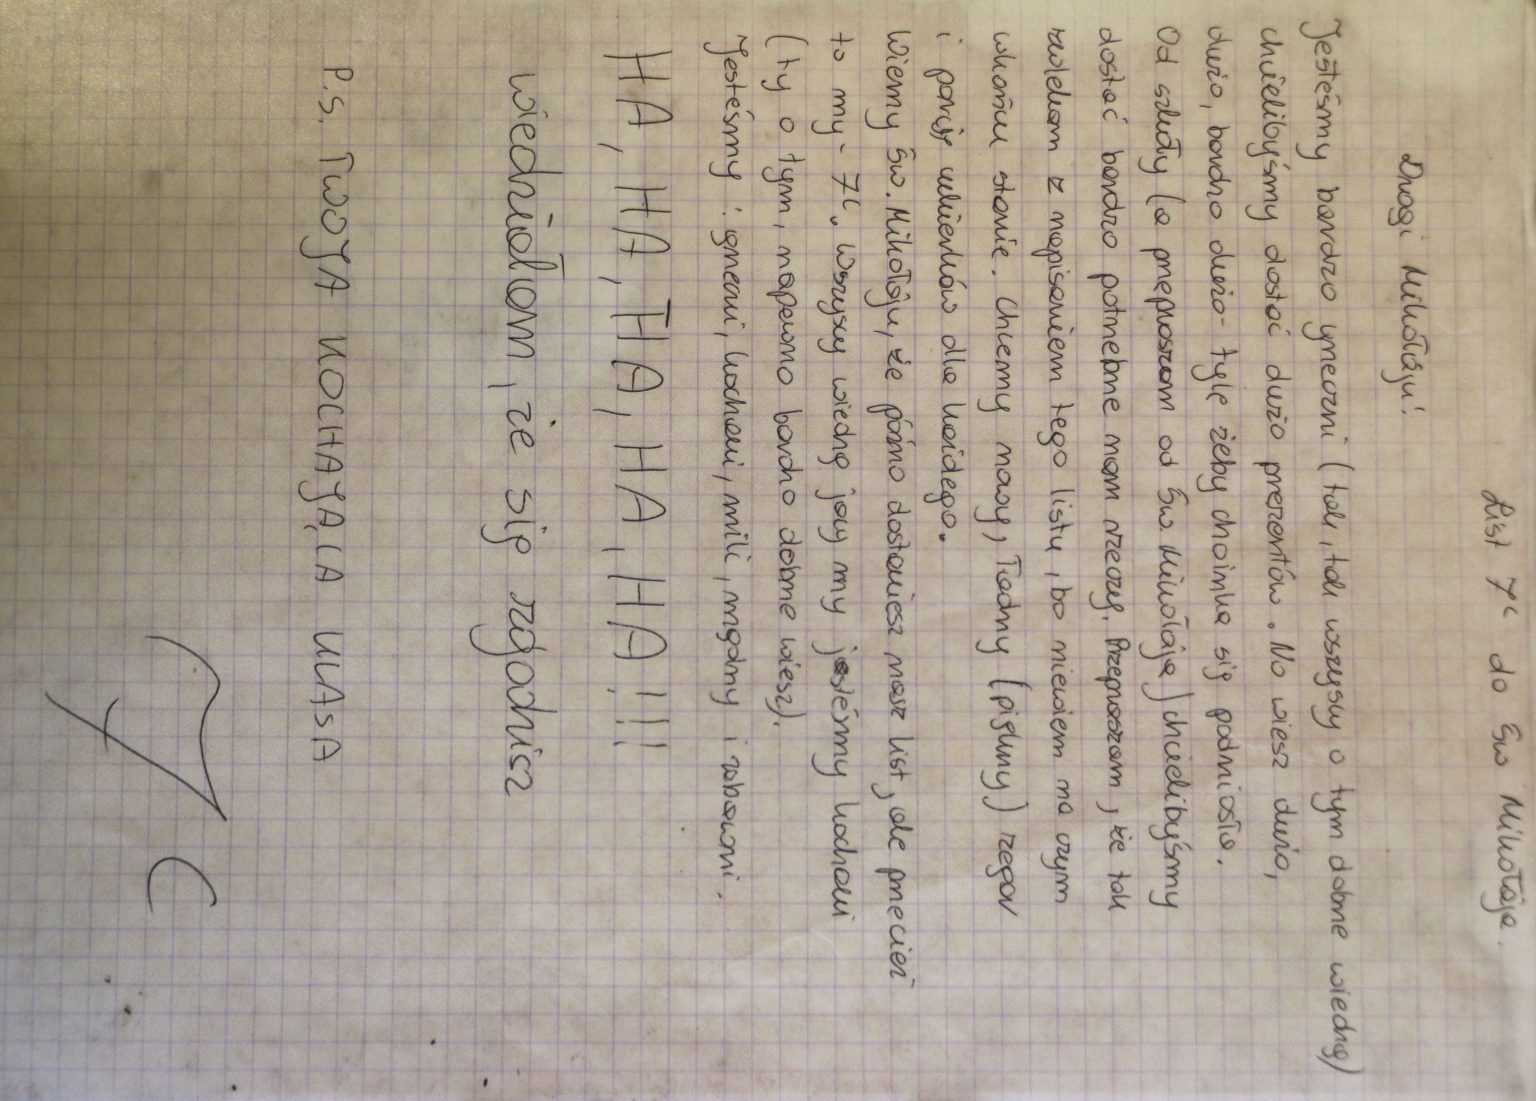 List 7c do Św Mikołaja.
Drogi Mikołaju!
Jesteśmy bardzo grzeczni (tak, tak wszyscy o tym dobrze wiedzą)
chcielibyśmy dostać dużo prezentów. No wiesz dużo,
dużo, bardzo dużo- tyle żeby choinka się podniosła.
Od szkoły (a przepraszam od Św Mikołaja) chcielibyśmy
dostać bardzo potrzebne nam rzeczy. Przepraszam, że tak
zwlekam z napisaniem tego listu, bo niewiem na czym
skończę. Chcemy nowy, ładny (piękny) zegar
i parę cukierków dla każdego.
Wiemy Św. Mikołaju, że późno dostaniesz nasz list, ale przecież
to my- 7c. Wszyscy wiedzą jacy my jesteśmy kochani
(ty o tym, napewno bardzo dobrze wiesz).
Jesteśmy: grzeczni, kochani, mili, mądrzy i zabawni.
HA, HA, HA, HA, HA, HA!!!
wiedziałam, że się zgodzisz
P.S. TWOJA KOCHAJĄCA KLASA
7 C